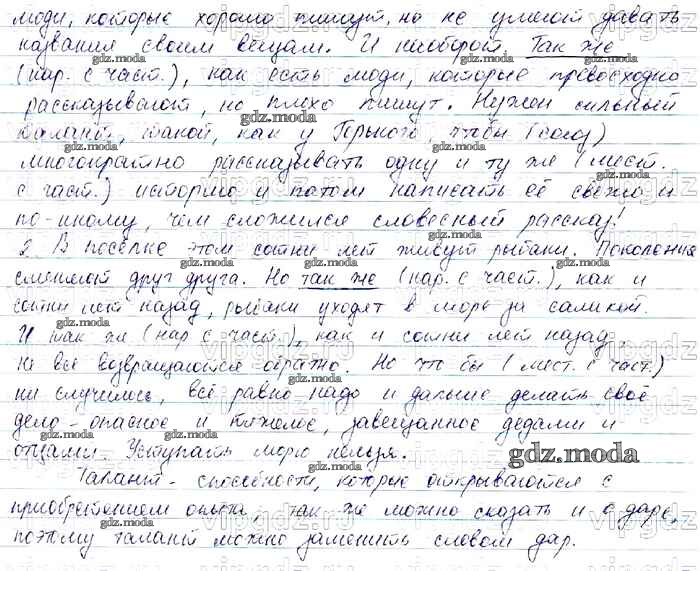 люди, которые хорошо пишут, но не умеют давать
названия своим вещам. И наоборот. Так же
(нар. с част.), как есть люди, которые превосходно
рассказывают, но плохо пишут. Нужен сильный
талант, такой, как у Горького, чтобы (союз)
многократно рассказывать одну и ту же (мест.
с част.) историю и потом написать её свежо и
по-иному, чем сложился словесный рассказ!
2. В посёлке этом сотни лет живут рыбаки. Поколения
сменяют друг друга. Но так же (нар. с част.), как и
сотни лет назад, рыбаки уходят в море за салакой.
И так же (нар с част.), как и сотни лет назад,
не все возвращаются обратно. Но что бы (мест. с част.)
ни случилось, всё равно надо и дальше делать своё
дело - опасное и тяжёлое, завещанное дедами и
отцами. Уступать морю нельзя.
Талант - способности, которые открываются с
приобретением опыта, так же можно сказать и о даре,
поэтому талант можно заменить словом дар.
gdz.moda
vipgdz.ru